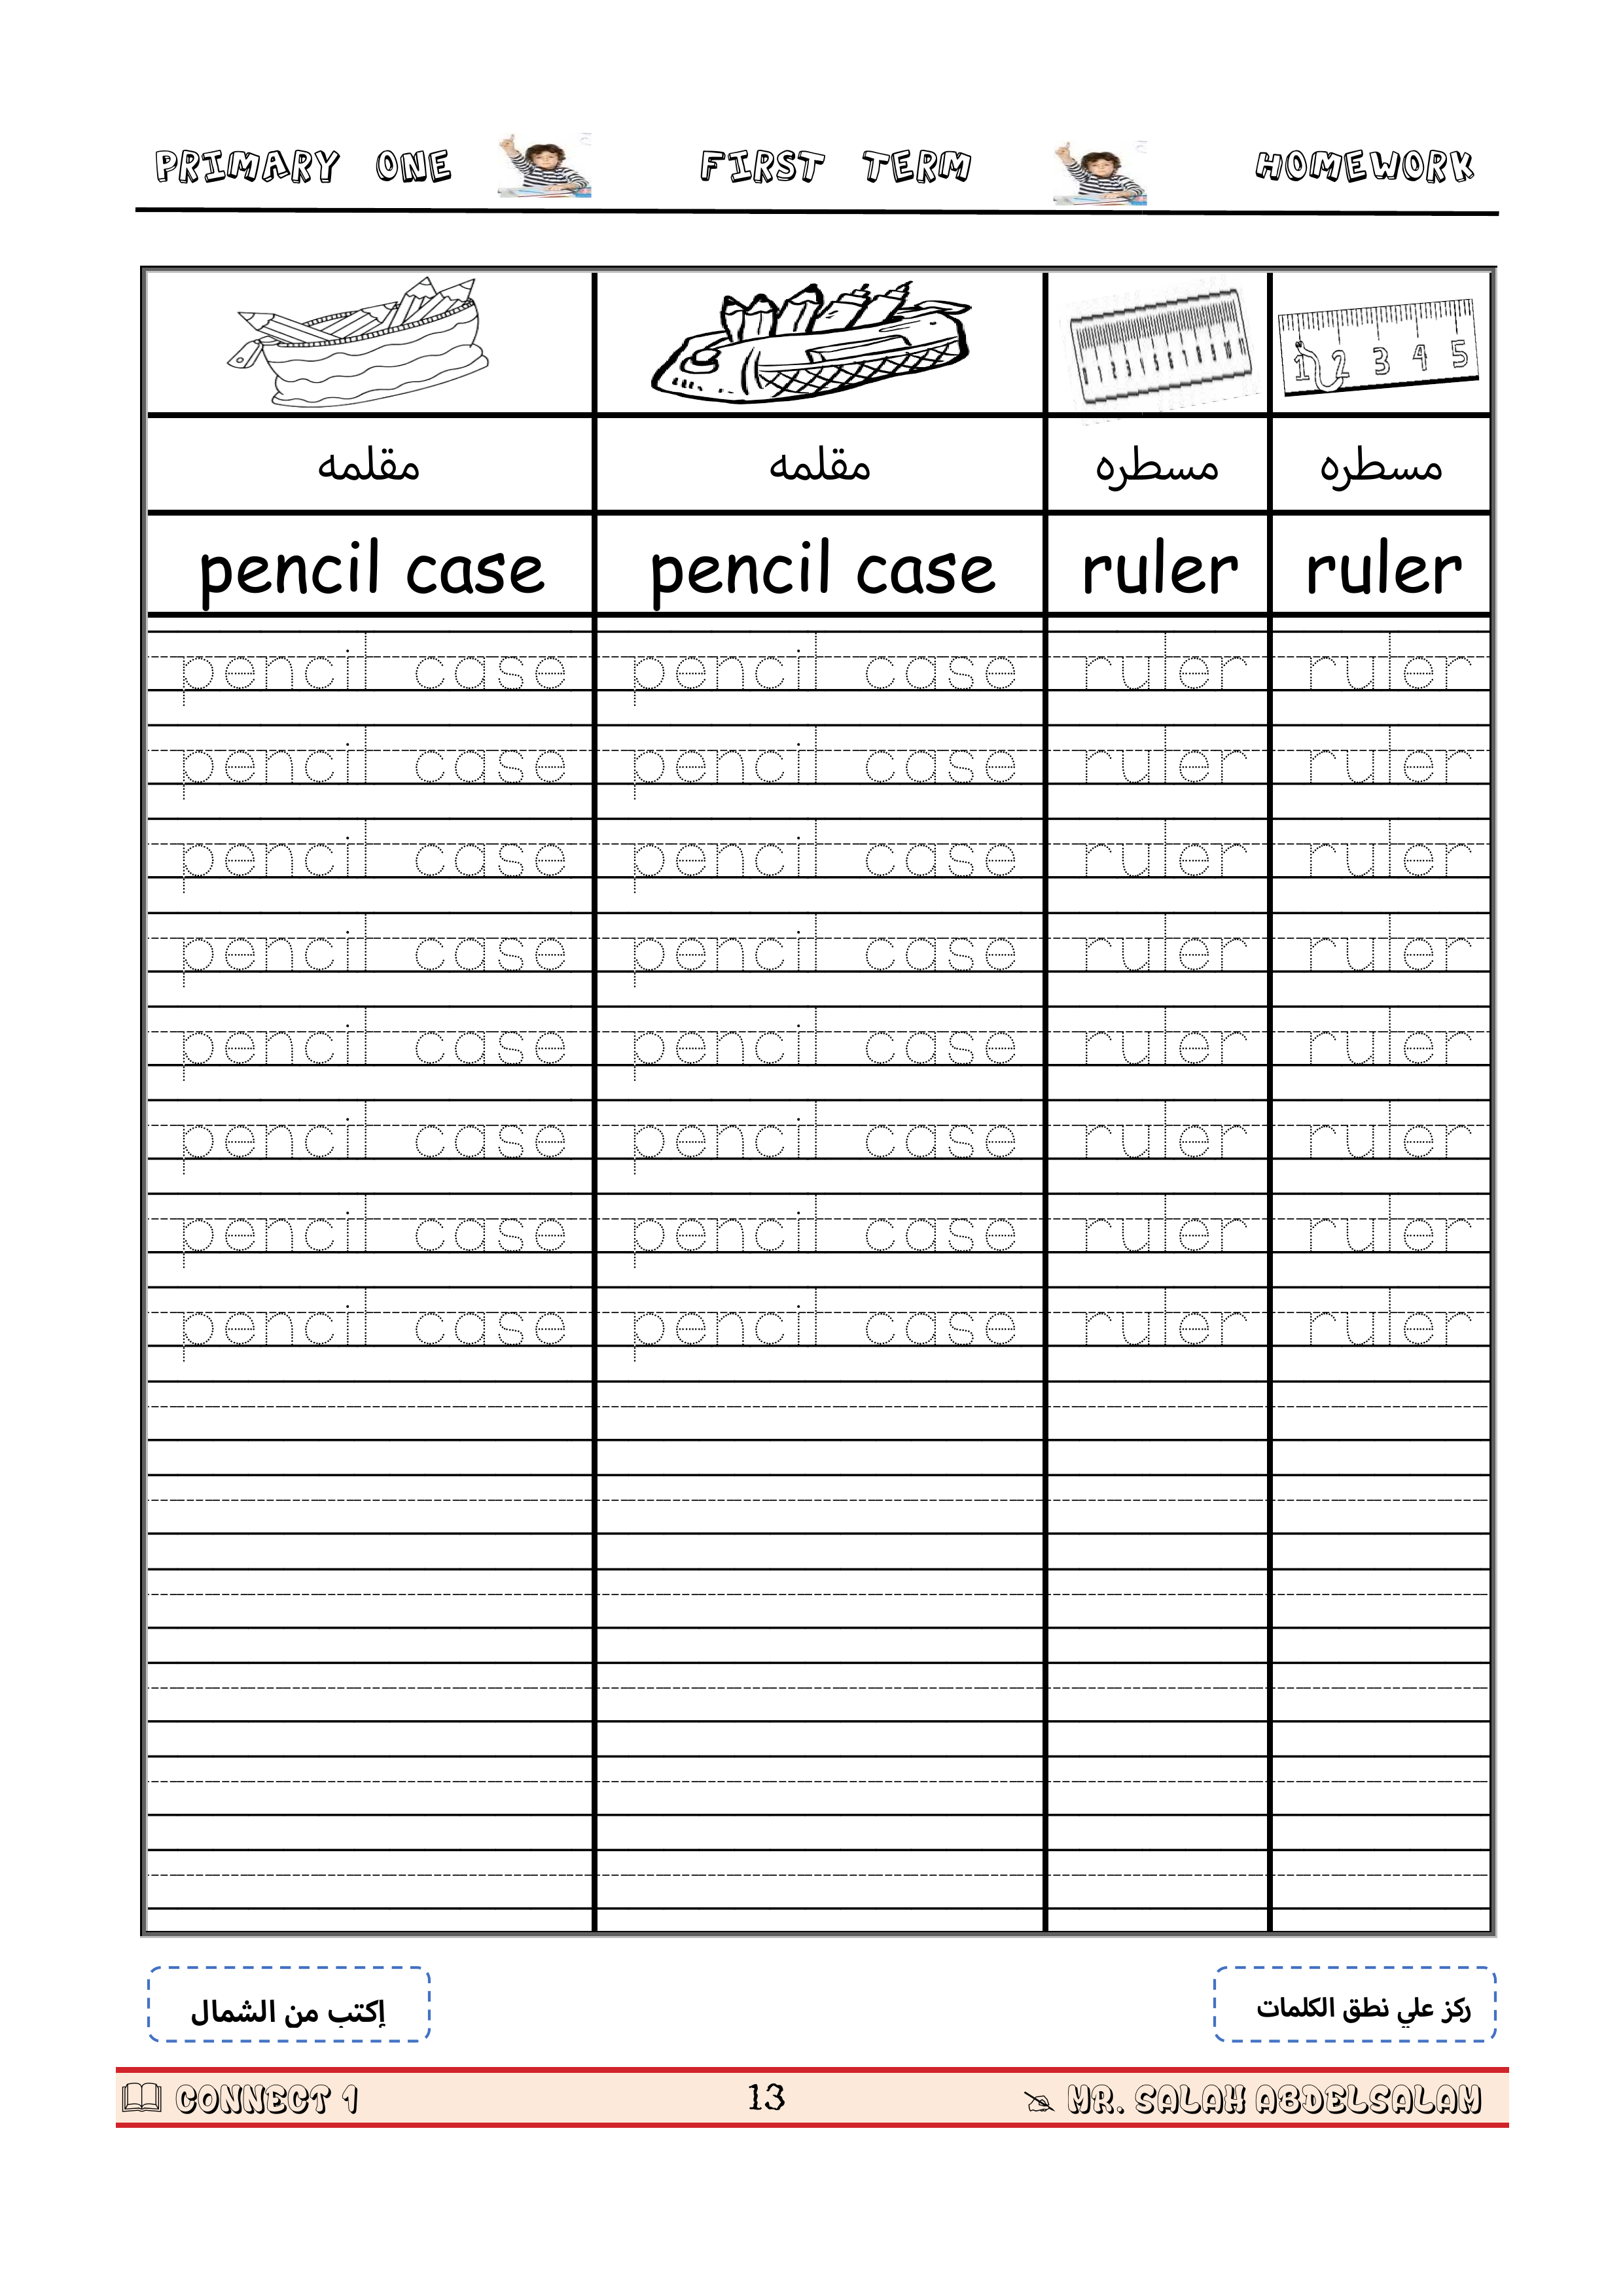 PRIMARY ONE FIRST TERM HOMEWORK
مقلمه مقلمه مسطره مسطره
pencil case pencil case ruler ruler
pencil case pencil case ruler ruler
pencil case pencil case ruler ruler
pencil case pencil case ruler ruler
pencil case pencil case ruler ruler
pencil case pencil case ruler ruler
pencil case pencil case ruler ruler
pencil case pencil case ruler ruler
pencil case pencil case ruler ruler
إكتب من الشمال
ركز علي نطق الكلمات
CONNECT 1 13 MR. SALAH ABDELSALAM